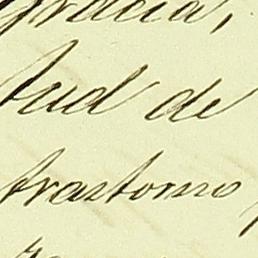 gracia,
tud de
trastorno